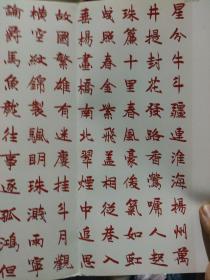 星分牛斗疆連淮海揚州萬
井提封花發路香鶯啼人起
珠簾十里春風豪俊氣如虹
曳照春金紫飛蓋相從巷入
垂楊畫橋南北翠煙中追思
故國繁雄有迷樓挂斗月觀
橫空紋錦製帆明珠濺雨寧
論爵馬魚龍往事逐孤鴻但